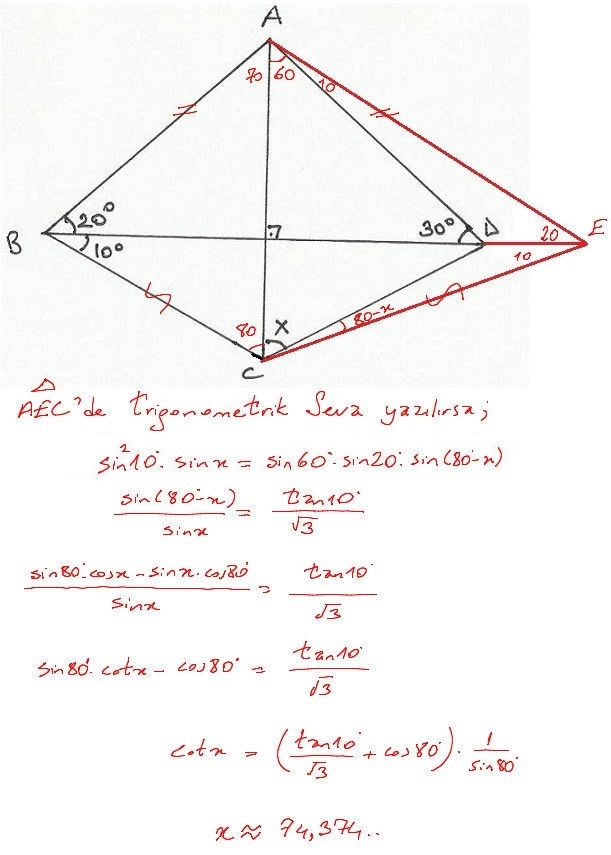 A
70 60 10
B 20° 10° 30° D 20 E
10
80 x 80-x
C
AEC'de trigonometrik Seva yazılırsa;
sin²10°. sinx = sin60°. sin20°. sin(80°-x)
sin(80°-x) / sinx = tan10° / √3
sin80°.cosx - sinx.cos80° / sinx = tan10° / √3
sin80°. cotx - cos80° = tan10° / √3
cotx = (tan10° / √3 + cos80°) . 1 / sin80°
x ≈ 74,374..